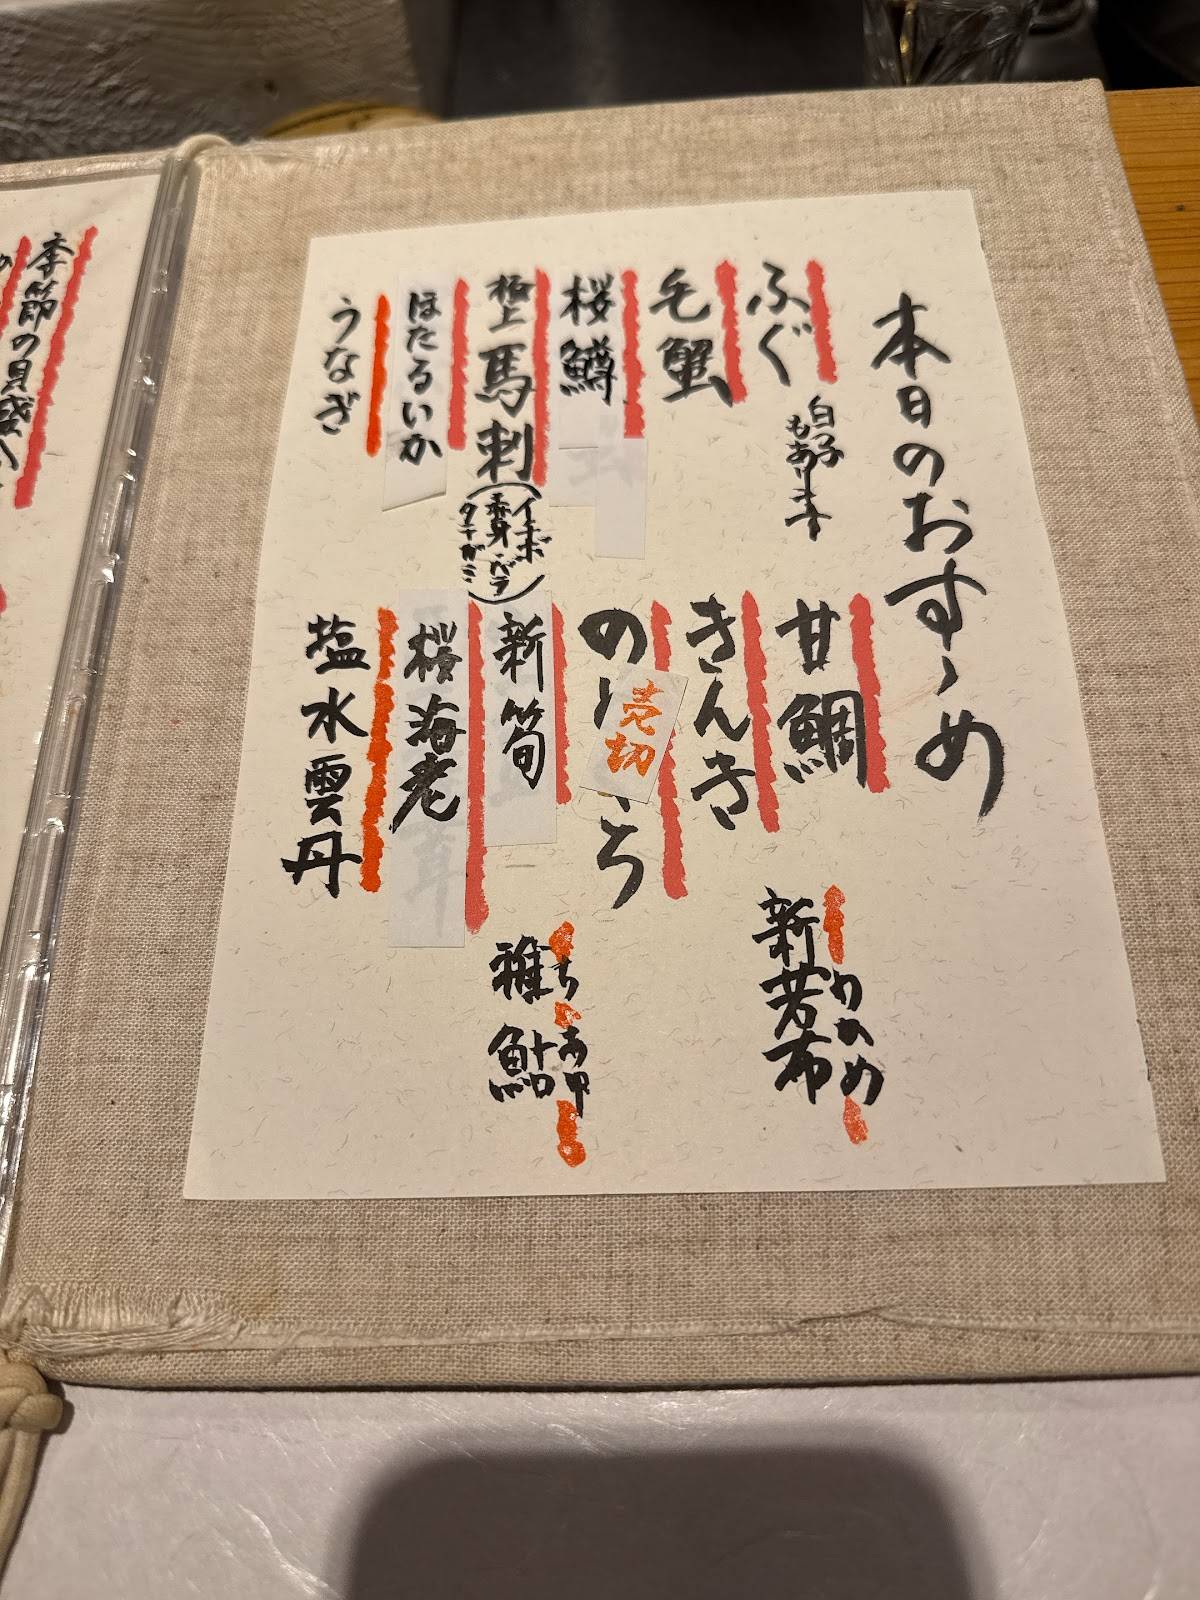 本日のおすゝめ
ふぐ
白子
もあります
毛蟹
桜鱒
極上馬刺
(イチボ
赤身・バラ
タテガミ)
ほたるいか
うなぎ
甘鯛
きんき
の
ろ
売切
新筍
桜海老
塩水雲丹
わかめ
新若布
ち
あゆ
稚鮎
季節の貝盛